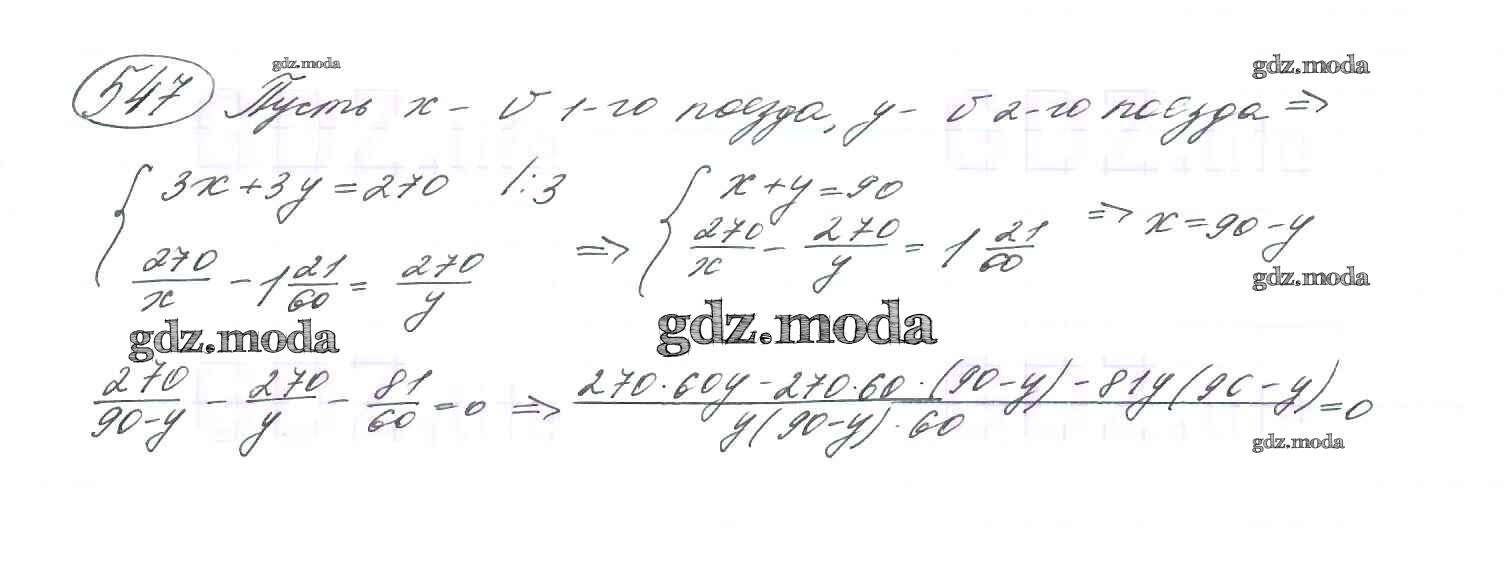 gdz.moda
gdz.moda
547 Пусть x - v 1-го поезда, y - v 2-го поезда ⇒
{ 3x + 3y = 270 | : 3
270/x - 1 21/60 = 270/y
⇒ { x + y = 90
270/x - 270/y = 1 21/60
⇒ x = 90 - y
gdz.moda
gdz.moda
gdz.moda
270/(90 - y) - 270/y - 81/60 = 0 ⇒ (270·60y - 270·60·(90 - y) - 81y(90 - y))/(y(90 - y)·60) = 0
gdz.moda